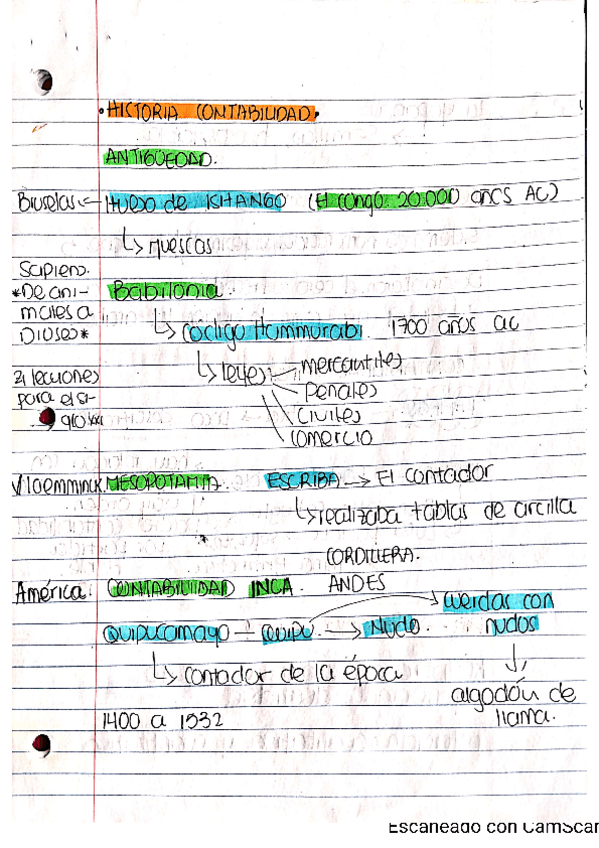 • HISTORIA CONTABILIDAD.
ANTIGÜEDAD.
Bruselas ← Hueso de ISHANGO (El congo 20.000 años AC)
↳ Muescas
Sapiens.
*De ani-
males a
Dioses*
Babilonia.
↳ codigo Hammurabi 1700 años ac
21 lecciones
para el si-
glo XXI
↳ leyes
mercantiles
Penales
Civiles
Comercio
Vloemminck MESOPOTAMIA. ESCRIBA → El contador
↳ realizaba tablas de arcilla
CORDILLERA.
ANDES
América. CONTABILIDAD INCA.
Quipucamayo — Quipu. → Nudo.
cuerdas con
nudos
↳ contador de la época
algodón de
llama.
1400 a 1532
Escaneado con CamScan